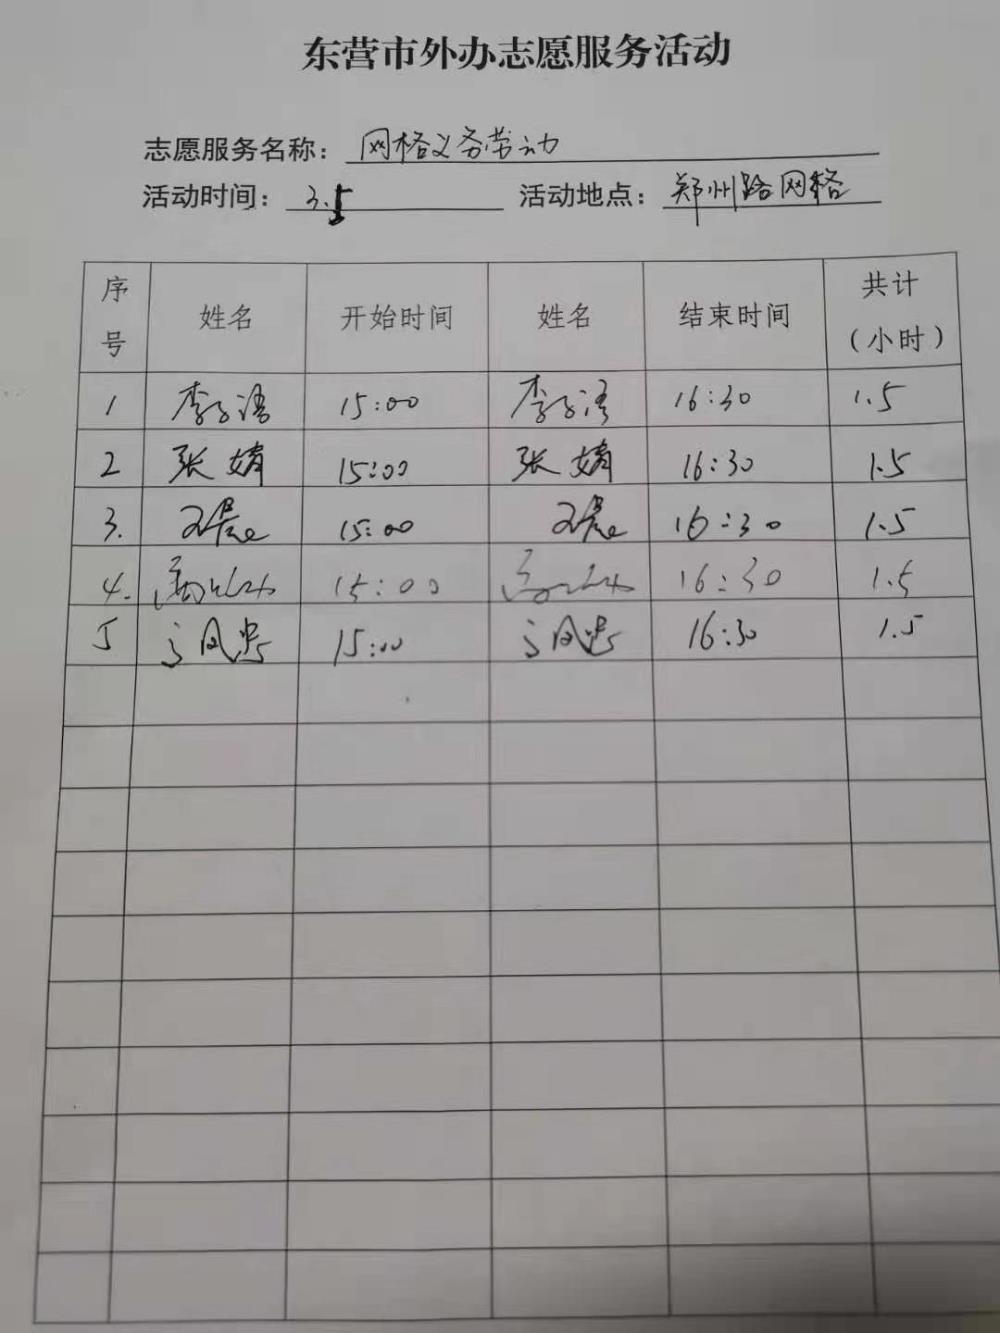 东营市外办志愿服务活动
志愿服务名称：网格义务劳动
活动时间：3.5 活动地点：郑州路网格
序号 姓名 开始时间 姓名 结束时间 共计（小时）
1 李子语 15:00 李子语 16:30 1.5
2 张婧 15:00 张婧 16:30 1.5
3. 王晨 15:00 王晨 16:30 1.5
4. 15:00 16:30 1.5
5 15:00 16:30 1.5